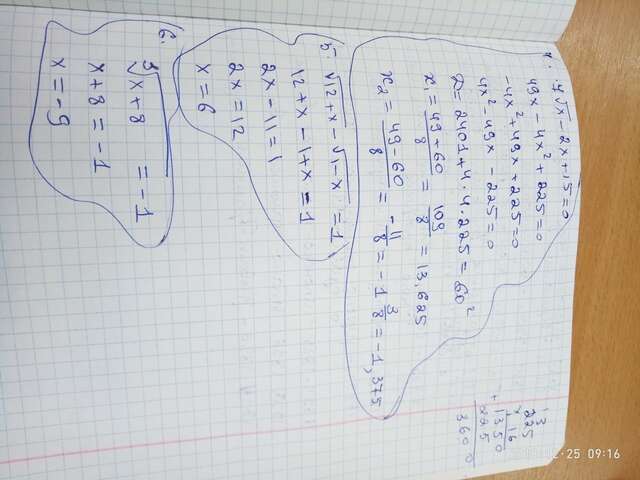 4. 7√x - 2x + 15 = 0
49x - 4x² + 225 = 0
-4x² + 49x + 225 = 0
4x² - 49x - 225 = 0
D = 2401 + 4·4·225 = 60²
x₁ = (49 + 60)/8 = 109/8 = 13,625
x₂ = (49 - 60)/8 = -11/8 = -1 3/8 = -1,375
5. √12+x - √1-x = 1
12 + x - 1 + x = 1
2x - 11 = 1
2x = 12
x = 6
6. ³√x+8 = -1
x + 8 = -1
x = -9
13
225
16
1350
+ 225
3600
25 09:16